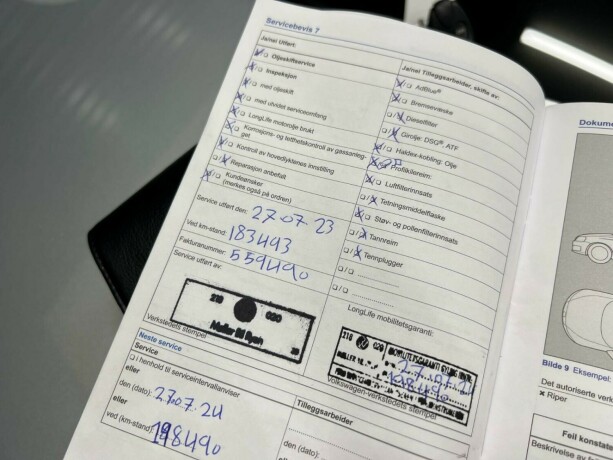 Servicebevis 7
Ja/nei Utført:
Oljeskiftservice
Inspeksjon
med oljeskift
med utvidet serviceomfang
LongLife motorolje brukt
Korrosjons- og tetthetskontroll av gassanleg-
get
Kontroll av hovedlyktenes innstilling
Reparasjon anbefalt
Kundeønsker
(merkes også på ordren)
Service utført den: 27 07 23
Ved km-stand: 183493
Fakturanummer: 559490
Service utført av:
218 020
Verkstedets stempel
Ja/nei Tilleggsarbeider, skifte av:
AdBlue®
Bremsevæske
Dieselfilter
Girolje: DSG®, ATF
Haldex-kobling: Olje
Profilkilereim:
Luftfilterinnsats
Tetningsmiddelflaske
Støv- og pollenfilterinnsats
Tannreim
Tennplugger
LongLife mobilitetsgaranti:
218 020 MOBILITETSGARANTI
MØLLER
198490
Volkswagen-verkstedets stempel
Neste service
Service
i henhold til serviceintervallanviser
eller
den (dato): 27.07.24
eller
ved (km-stand): 198490
Tilleggsarbeider
den (dato):
Dokume
Bilde 9 Eksempel:
Det autoriserte verk
× Riper
Feil konstate
Beskrivelse av